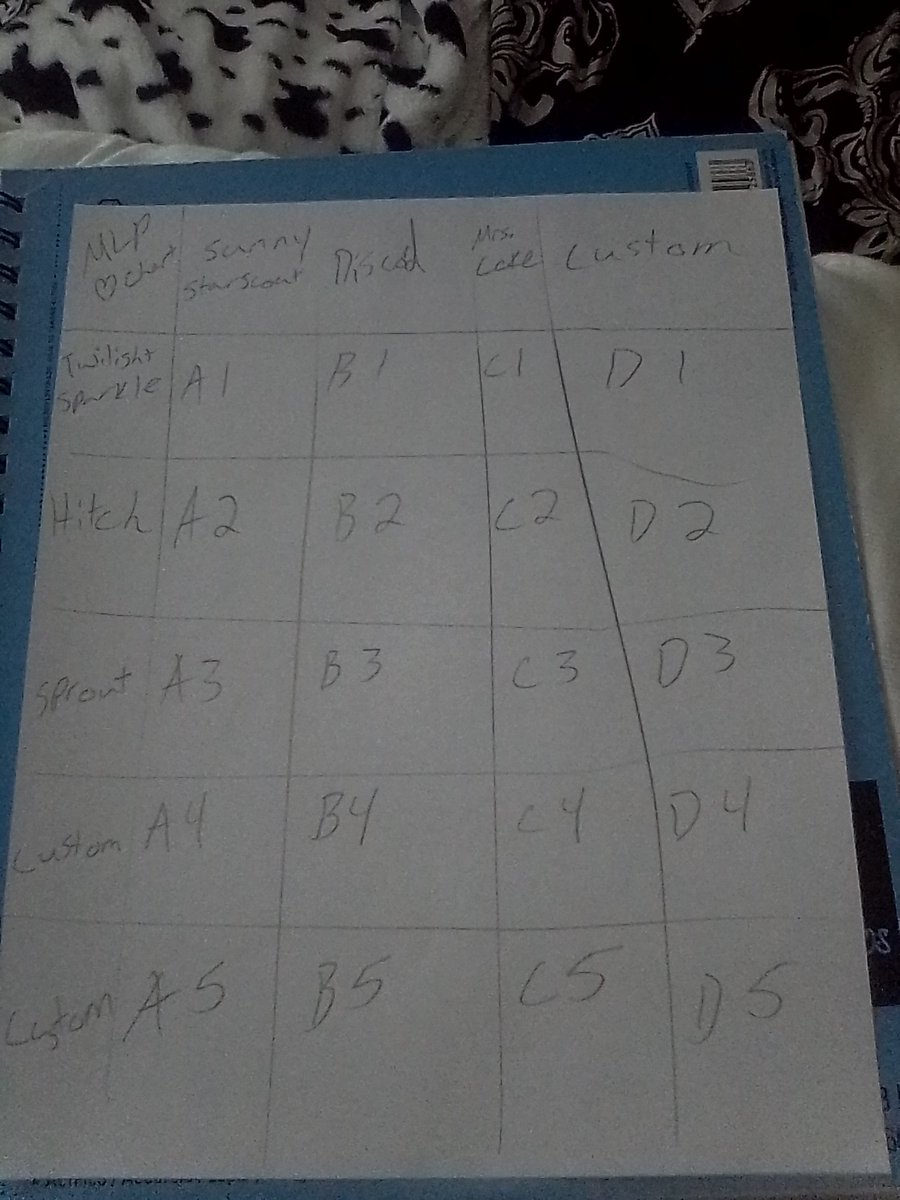 MLP
♡ chart
Sunny
Starscout
Discord
Mrs.
Cake
Custom
Twilight
Sparkle
A1
B1
C1
D1
Hitch
A2
B2
C2
D2
Sprout
A3
B3
C3
D3
Custom
A4
B4
C4
D4
Custom
A5
B5
C5
D5